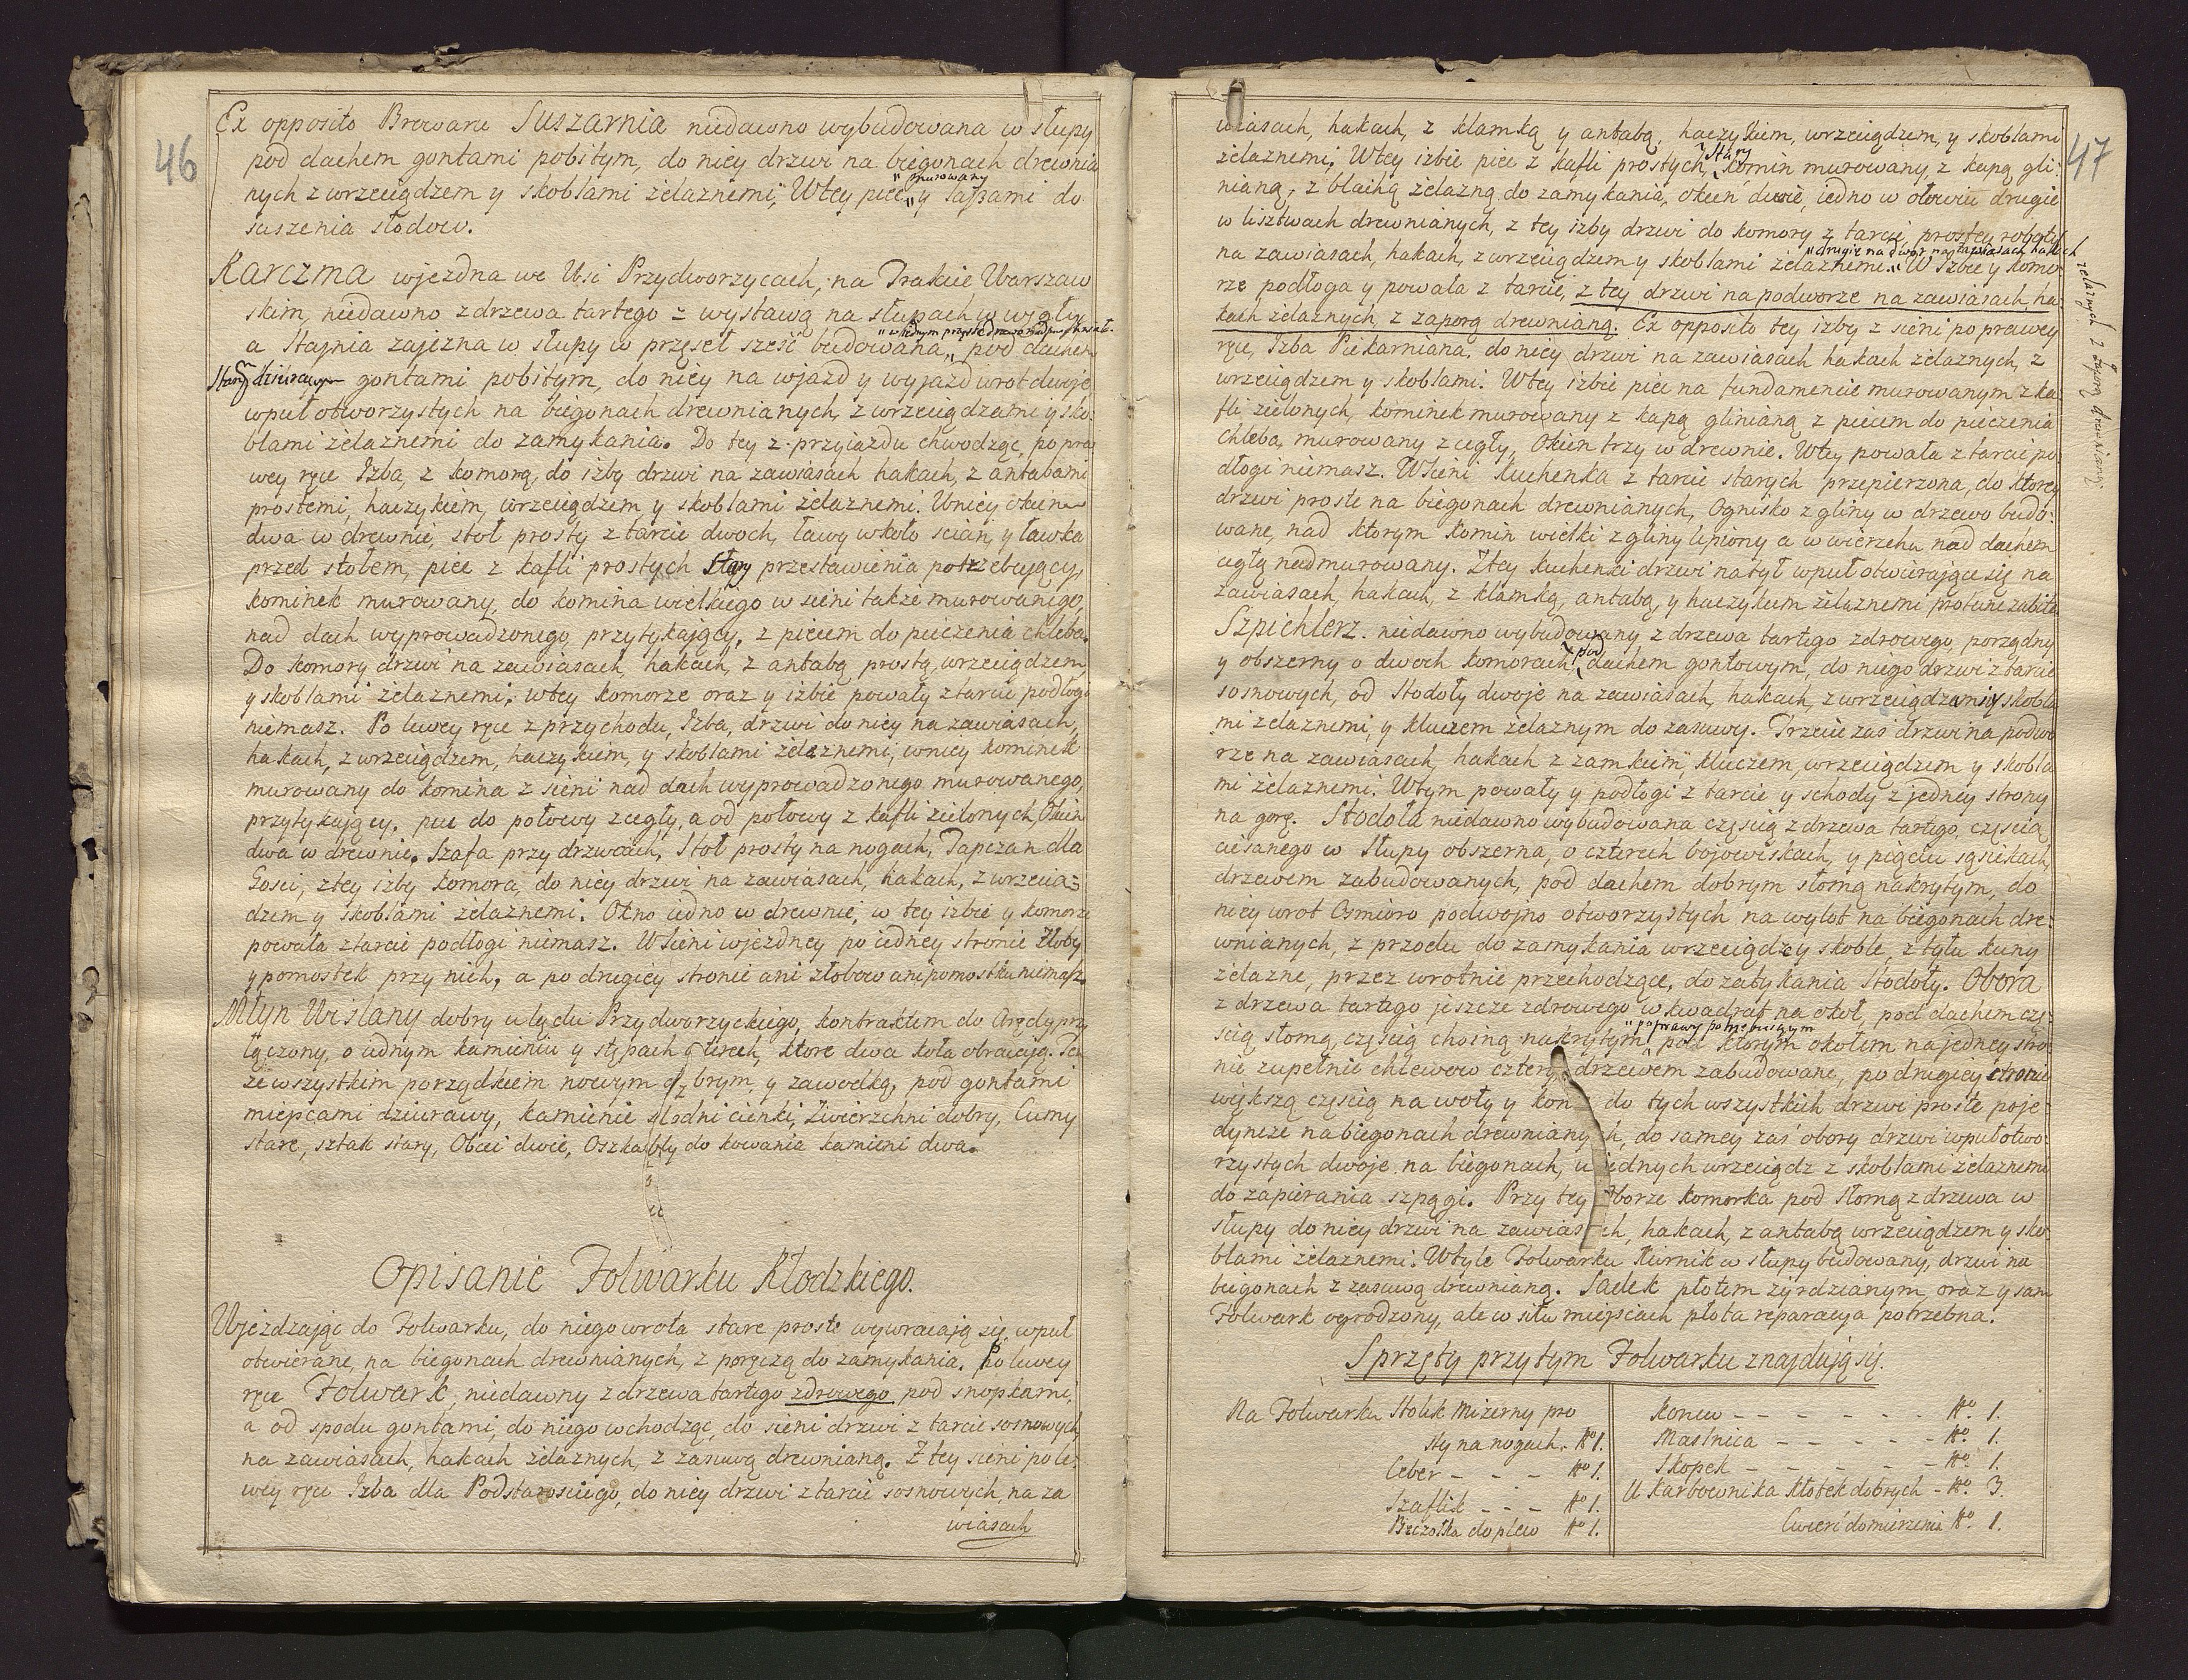 46
Ex opposito Browaru Suszarnia niedawno wybudowana w słupy
pod dachem gontami pobitym, do niey drzwi na biegonach drewnia
nych z wrzeciądzem y skoblami żelaznemi, W tey piec " murowany " y łassami do
suszenia słodow.
Karczma wjezdna we Wsi Przydworzycach, na Trakcie Warszaw
skim, niedawno z drzewa tartego z wystawą na słupach w węgły
a Stajnia zajezna w słupy w przęseł sześć budowana " w jednym przęśle drzewo nadpruchniałe " pod dachem
Starym dziurawym gontami pobitym, do niey na wjazd y wyjazd wrot dwoje
wpuł otworzystych na biegonach drewnianych, z wrzeciądzami y sko:
blami żelaznemi do zamykania. Do tey z przyiazdu chwodząc, po pra
wey ręce Izba, z komorą, do izby drzwi na zawiasach hakach, z antabami
prostemi, haczykiem, wrzeciądzem y skoblami żelaznemi. W niey okien
dwa w drewnie, stoł prosty z tarcic dwoch, ławy wkoło scian, y ławka
przed stołem, piec z kafli prostych Stary przestawienia potrzebujący,
kominek murowany, do komina wielkiego w sieni także murowanego,
nad dach wyprowadzonego, przytykający, z piecem do pieczenia chleba.
Do komory drzwi na zawiasach, hakach, z antabą prostą, wrzeciądzem
y skoblami żelaznemi, w tey komorze oraz y izbie powały z tarcic podłogi
niemasz. Po lewey ręce z przychodu, Izba, drzwi do niey na zawiasach,
hakach, z wrzeciądzem, haczykiem, y skoblami żelaznemi, w niey kominek
murowany do komina z sieni nad dach wyprowadzonego murowanego,
przytykający, piec do połowy z cegły, a od połowy z kafli zielonych, Okien
dwa w drewnie. Szafa przy drzwiach, Stoł prosty na nogach, Tapczan dla
Gosci, z tey izby komora, do niey drzwi na zawiasach, hakach, z wrzecią:
dzem y skoblami żelaznemi. Okno iedno w drewnie, w tey izbie y komorze
powała z tarcic podłogi niemasz. W sieni wjezdney po iedney stronie Złoby
y pomostek przy nich, a po drugiey stronie ani złobow ani pomostku niemasz.
Młyn Wislany dobry u lądu Przydworzyckiego, kontraktem do Arędy przy
łączony, o iednym kamieniu y stępach czterech, ktore dwa koła obracają. Ten
ze wszystkim porządkiem nowym dobrym, y zawodką, pod gontami
miejscami dziurawy, kamienie spodni cienki, Zwierzchni dobry, Cumy
stare, sztak stary, Obcei dwie, Oszkarby do kowania kamieni dwa.
Opisanie Folwarku Kłodzkiego.
Wjeżdzając do Folwarku, do niego wrota stare proste wywracają się, wpuł
otwierane, na biegonach drewnianych, z poręczą do zamykania. Po lewey
ręce Folwark, niedawny z drzewa tartego zdrowego pod snopkami,
a od spodu gontami, do niego wchodząc, do sieni drzwi z tarcic sosnowych
na zawiasach, hakach żelaznych, z zasuwą drewnianą. Z tey sieni po le:
wey ręce Izba dla Podstarosciego, do niey drzwi z tarcic sosnowych, na za
wiasach
47
wiasach, hakach, z klamką y antabą, haczykiem, wrzeciądzem, y skoblami
żelaznemi. W tey izbie piec z kafli prostych, Stary komin murowany, z kapą gli:
nianą, z blaiką żelazną do zamykania, okien dwie, iedno w ołowiu drugie
w lisztwach drewnianych, z tey izby drzwi do komory z tarcic, prostey roboty
na zawiasach, hakach, z wrzeciądzem y skoblami żelaznemi. " drugie na dwor na zawiasach hakach żelaznych z zaporą drewnianą " W Izbie y komo:
rze podłoga y powała z tarcic, z tey drzwi na podworze na zawiasach, ha:
kach żelaznych, z zaporą drewnianą. Ex opposito tey izby z sieni po prawey
ręce, Izba Piekarniana, do niey drzwi na zawiasach hakach żelaznych, z
wrzeciądzem y skoblami. W tey izbie piec na fundamencie murowanym z ka:
fli zielonych, kominek murowany z kapą glinianą z piecem do pieczenia
chleba, murowany z cegły, Okien trzy w drewnie. W tey powała z tarcic po
dłogi niemasz. W sieni kuchenka z tarcic starych przepierzona, do ktorey
drzwi proste na biegonach drewnianych, Ognisko z gliny w drzewo budo:
wane, nad ktorym komin wielki z gliny lepiony a w wierzchu nad dachem
cegłą nadmurowany. Z tey kuchenki drzwi na tył wpuł otwierające się na
zawiasach, hakach, z klamką, antabą, y haczykiem żelaznemi
Szpichlerz. niedawno wybudowany z drzewa tartego zdrowego, porządny
y obszerny o dwoch komorach pod dachem gontowym, do niego drzwi z tarcic
sosnowych, od Stodoły dwoje na zawiasach, hakach, z wrzeciądzami y skobla
mi żelaznemi, y kluczem żelaznym do zasuwy. Trzecie zaś drzwi na podwo
rze na zawiasach, hakach z zamkiem, kluczem, wrzeciądzem y skobla
mi żelaznemi. W tym powały y podłogi z tarcic y schody z jedney strony
na gorę. Stodoła niedawno wybudowana częscią z drzewa tartego, częscią
ciesanego w słupy obszerna, o czterech bojowiskach, y pięciu sąsiekach,
drzewem zabudowanych, pod dachem dobrym słomą nakrytym, do
niey wrot Osmioro podwojno otworzystych na wylot na biegonach dre:
wnianych, z przodu do zamykania wrzeciądzy skoble, z tyłu kuny
żelazne, przez wrotnie przechodzące, do zatykania Stodoły. Obora
z drzewa tartego jeszcze zdrowego w kwadrat na okoł, pod dachem czę:
scią słomą, częscią choiną nakrytym " poprawy potrzebuiącym pod ktorym okołem na jedney stro:
nie zupełnie chlewow cztery drzewem zabudowane, po drugiey stronie
większą częscią na woły y konie do tych wszystkich drzwi proste poje:
dyncze na biegonach drewnianych, do samey zaś obory drzwi wpuł otwo:
rzystych dwoje na biegonach, u iednych wrzeciądz z skoblami żelaznemi
do zapierania szpągi. Przy tey Oborze komorka pod słomą z drzewa w
słupy do niey drzwi na zawiasach, hakach, z antabą wrzeciądzem y sko
blami żelaznemi. W tyle Folwarku Kurnik w słupy budowany, drzwi na
biegonach z zasuwą drewnianą. Sadek płotem żyrdzianym, oraz y sam
Folwark ogrodzony, ale w ilu miejscach płota reparacya potrzebna.
Sprzęty przy tym Folwarku znajdują się.
Na Folwarku Stolik Mizerny pro
sty na nogach. No 1.
Ceber - - - No 1.
Szaflik - - - No 1.
Beczołka do plew No 1.
Konew - - - - - - - No. 1.
Maslnica - - - - - - No. 1.
Skopek - - - - - - - No. 1.
U Karbownika Kłotek dobrych - No. 3.
Cwierć do mierzenia No. 1.